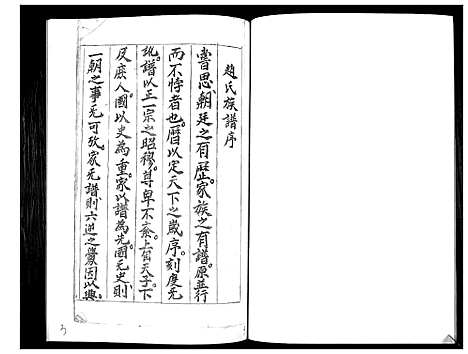 趙氏族譜序
嘗思朝廷之有歷家族之有譜原並行
而不悖者也曆以定天下之歲序刻度无
訛譜以正一宗之昭穆尊卑不紊上自天子下
及庶人國以史為重家以譜為先國无史則
一朝之事无可攷家无譜則六逆之釁因以興